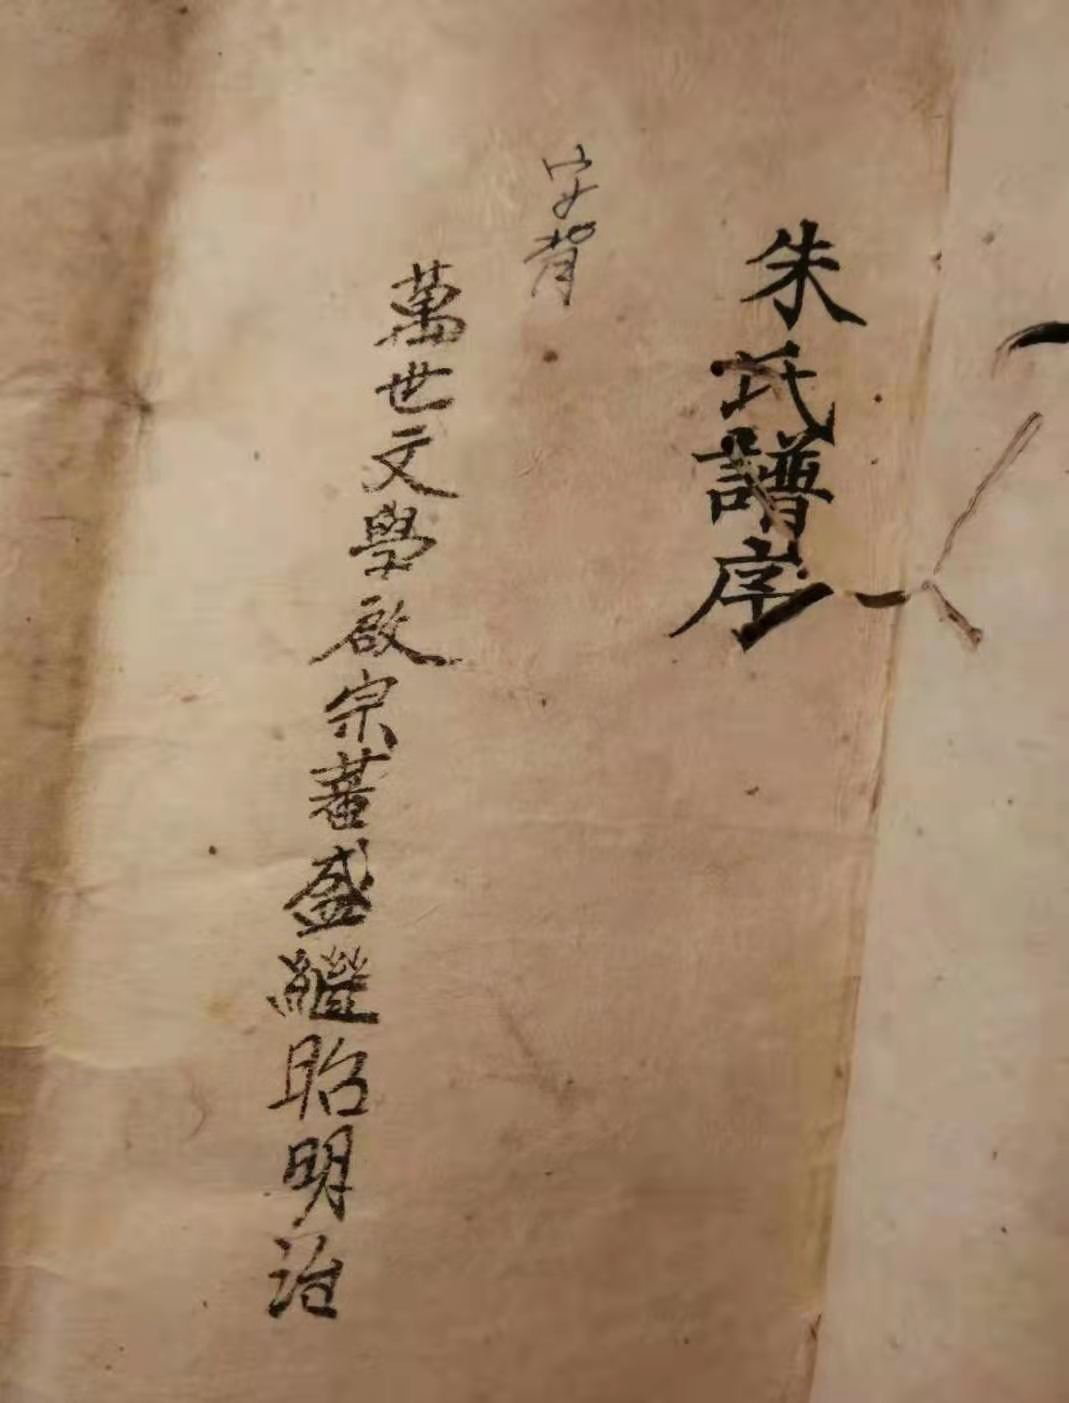 朱氏譜序
字背
萬世文學啟宗蕃盛繼昭明治